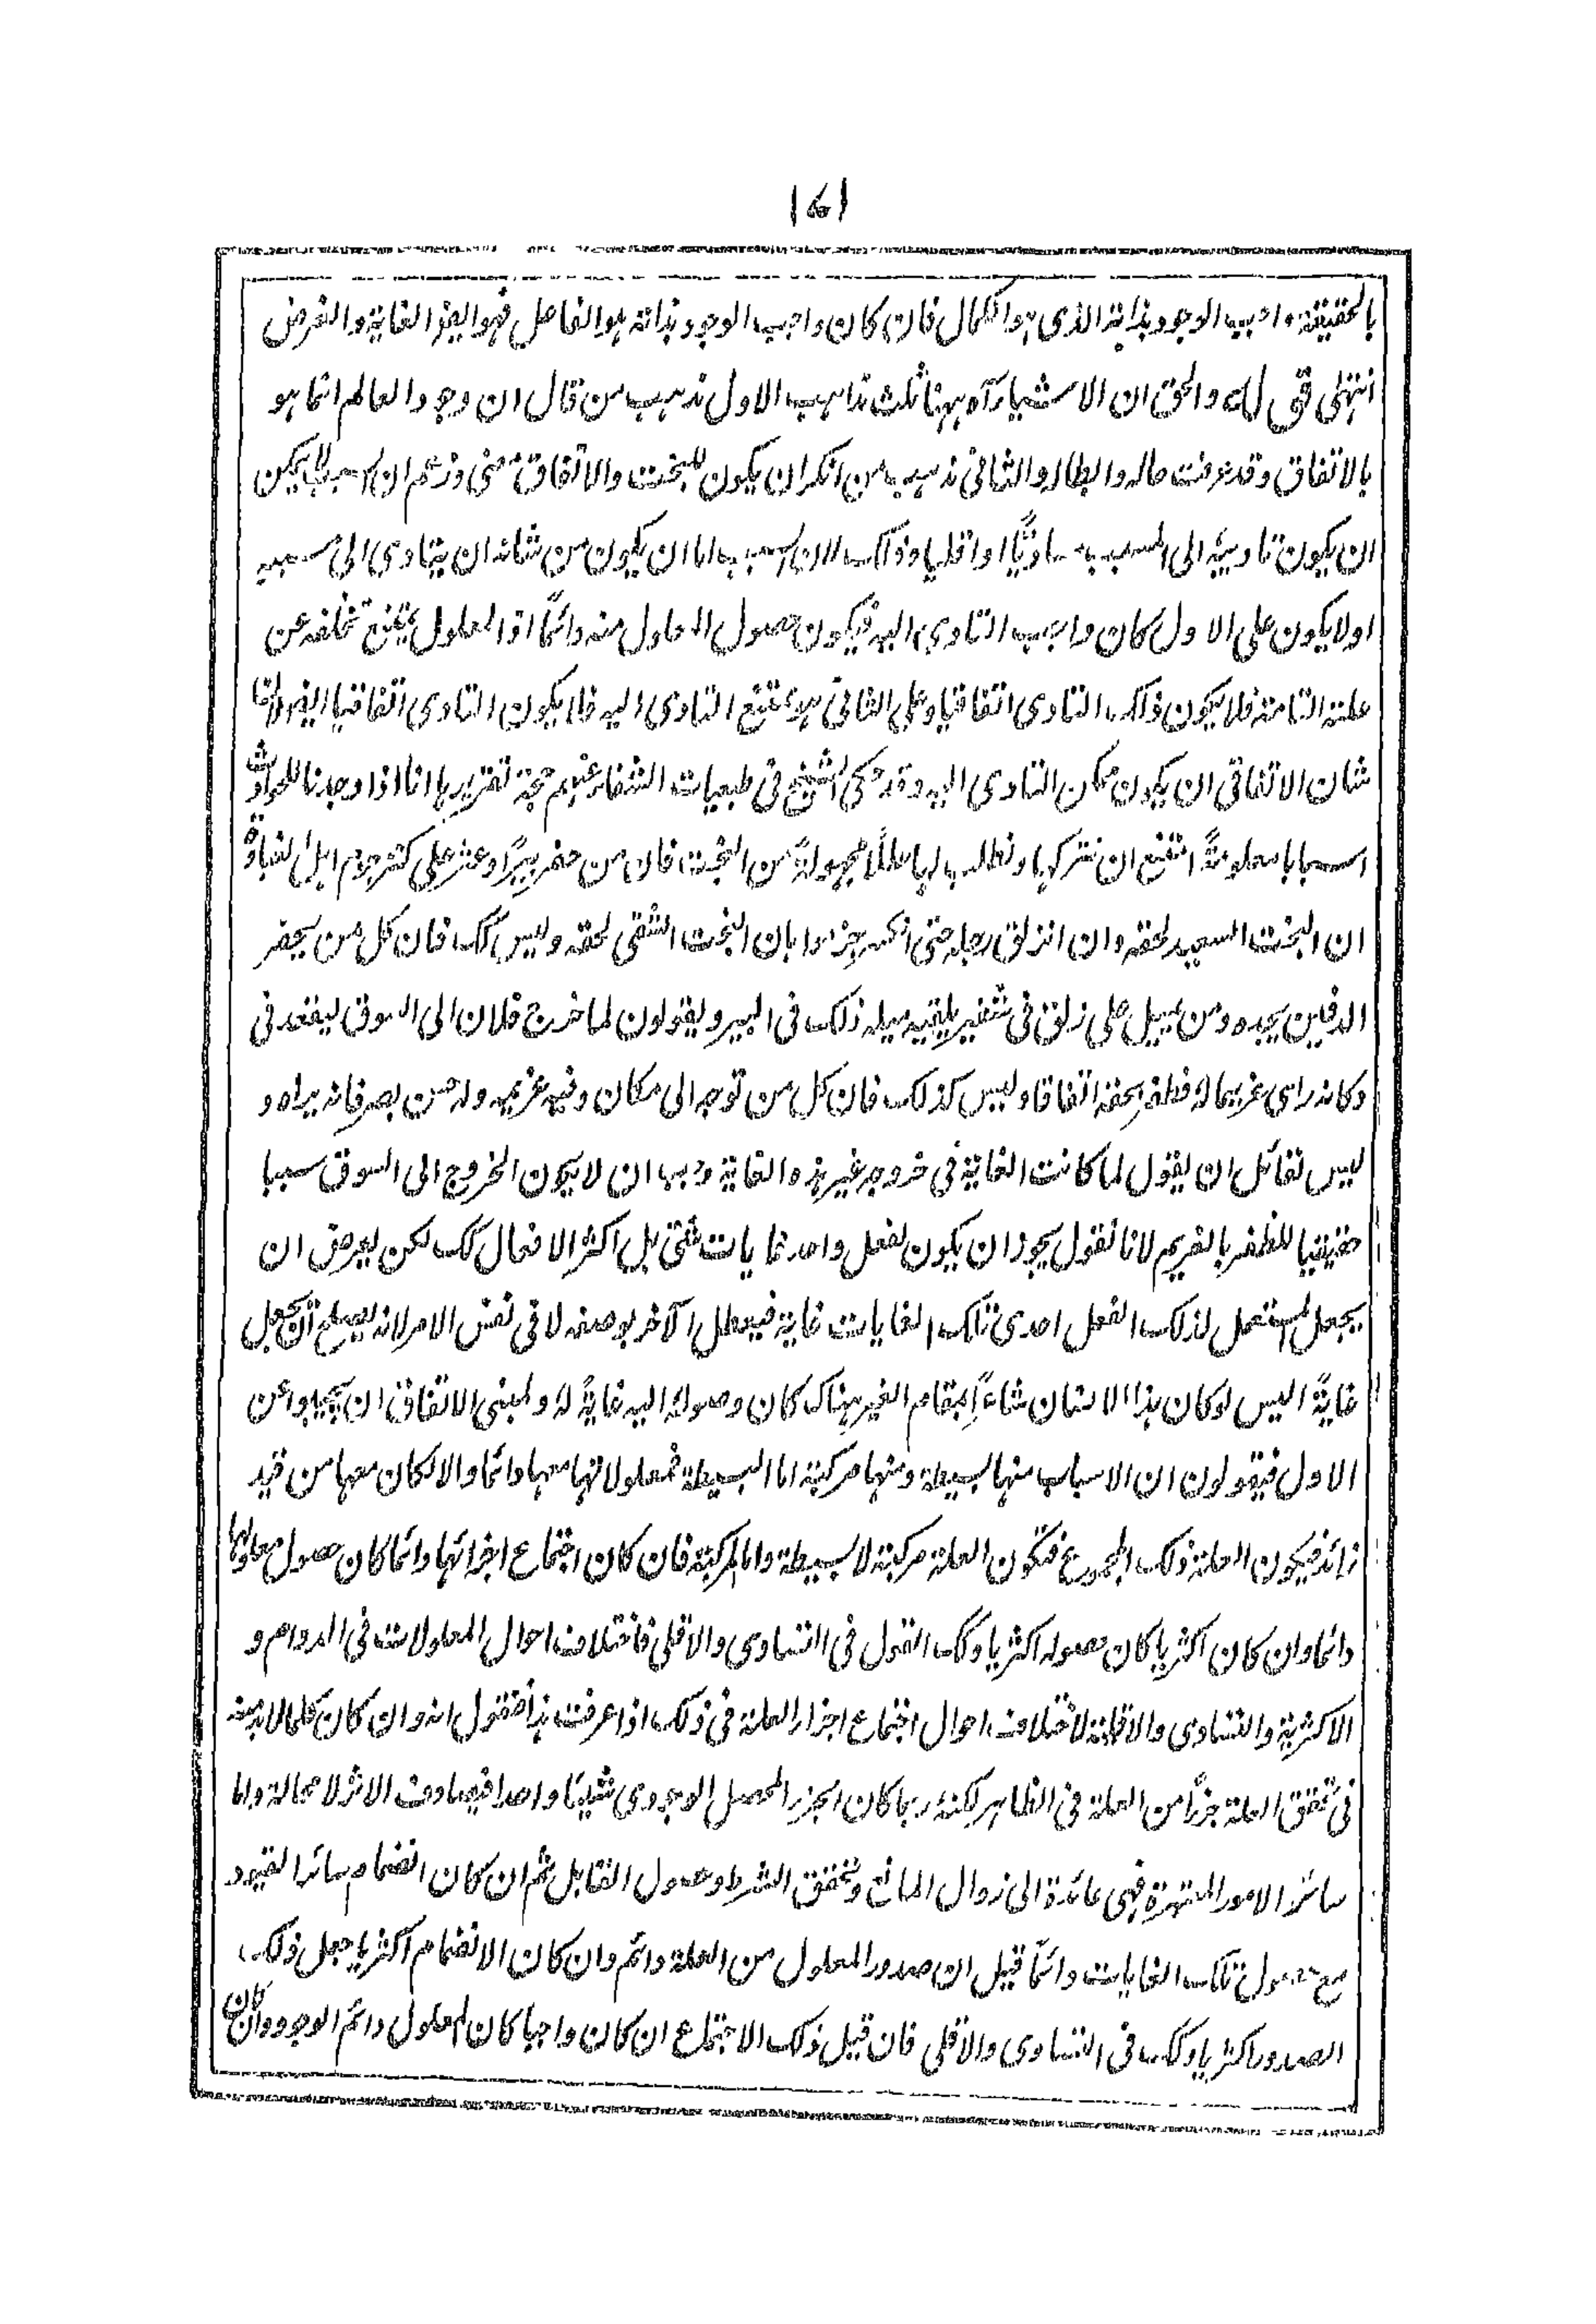 ١٧١
بالحقيقة واجب الوجود بذاته الذى هو الكمال فان كان واجب الوجود بذاته هو الفاعل فهو ايضا الغاية والغرض
انتهى قوله والحق ان الاشياء آه ههنا ثلث مذاهب الاول مذهب من قال ان وجود العالم انما هو
بالاتفاق وقد عرفت حاله وابطاله والثانى مذهب من انكر ان يكون للبخت والاتفاق معنى وزعم ان السبب لا يمكن
ان يكون تاديته الى المسبب مساويًا او اقليا وذلك لان السبب اما ان يكون من شانه ان يتادى الى مسببه
اولا يكون على الاول كان واجب التادى اليه فيكون حصول المعلول منه دائمًا اذ المعلول يمتنع تخلفه عن
علته التامة فلا يكون ذلك التادى اتفاقيا وعلى الثانى يمتنع التادى اليه فلا يكون التادى اتفاقيا ايضا لان
شان الاتفاقى ان يكون ممكن التادى اليه وقد حكى الشيخ فى طبعيات الشفاء عنهم حجة تقريرها انا اذا وجدنا للحوادث
اسبابا معلومةً امتنع ان نتركها ونطلب لها عللًا مجهولةً من البخت فان من حفر بيرًا وعثر على كنز جزم اهل الغباوة
ان البخت السعيد لحقه وان انزلق رجله حتى انكسر جزموا بان البخت الشقى لحقه وليس كك فان كل من يحفر
الدفين يجده ومن يميل على زلق فى شفير يلقيه ميله ذلك فى البير ويقولون لما خرج فلان الى السوق ليقعد فى
دكانه راى غريما له فظفر بحقه اتفاقا وليس كذلك فان كل من توجه الى مكان وفيه غريمه وله حسن بصر فانه يراه و
ليس لقائل ان يقول لما كانت الغاية فى خروجه غير هذه الغاية وجب ان لا يكون الخروج الى السوق سببا
حقيقيا للظفر بالغريم لانا نقول يجوز ان يكون لفعل واحد غايات شتى بل اكثر الافعال كك لكن يعرض ان
يجعل المستعمل لذلك الفعل احدى تلك الغايات غاية فيبطل الآخر بوضعه لا فى نفس الامر لانه يصلح ان يجعل
غايةً اليس لو كان هذا الانسان شاعرًا بمقام الغير هناك كان وصوله اليه غايةً له ولمبنى الاتفاق ان يجيبوا عن
الاول فيقولون ان الاسباب منها بسيطة ومنها مركبة اما البسيطة فمعلولاتها معها دائما والا لكان معها من قيد
زائد فيكون العلة ذلك المجموع فتكون العلة مركبة لا بسيطة واما المركبة فان كان اجتماع اجزائها دائما كان حصول معلولها
دائما وان كان اكثريا كان حصوله اكثريا وكك القول فى التساوى والاقلى فاختلاف احوال المعلولات فى الدوام و
الاكثرية والتساوى والاقلية لاختلاف احوال اجتماع اجزاء العلة فى ذلك اذا عرفت هذا فنقول انه وان كان كلما لا بد منه
فى تحقق العلة جزءًا من العلة فى الظاهر لكنه ربما كان الجزء المحصل الوجودى شيئًا واحدا فيصادف الاثر لا محالة واما
سائر الامور المعتبرة فهى عائدة الى زوال المانع وتحقق الشرط وحصول القابل ثم ان كان انضمام سائر القيود
مع حصول تلك الغايات دائمًا قيل ان صدور المعلول من العلة دائم وان كان الانضمام اكثريا جعل ذلك
الصدور اكثريا وكك فى التساوى والاقلى فان قيل ذلك الاجتماع ان كان واجبا كان المعلول دائم الوجود وان كان